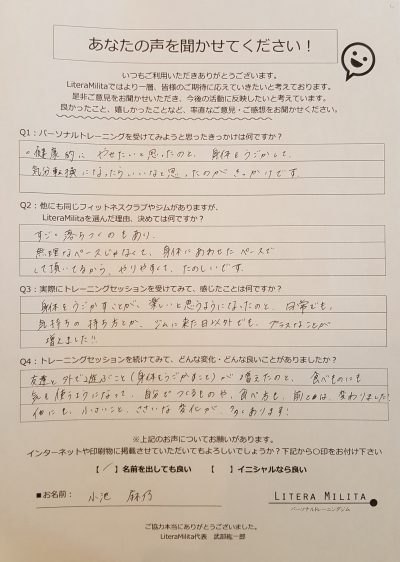 あなたの声を聞かせてください！
いつもご利用いただきありがとうございます。
LiteraMilitaではより一層、皆様のご期待に応えていきたいと考えております。
是非ご意見をお聞かせいただき、今後の活動に反映したいと考えています。
良かったこと、嬉しかったことなど、率直なご意見・ご感想をお聞かせください。
Q1：パーソナルトレーニングを受けてみようと思ったきっかけは何ですか？
健康的に やせたいと思ったのと、身体をうごかして、
気分転換になったらいいなと思ったのがきっかけです。
Q2：他にも同じフィットネスクラブやジムがありますが、
LiteraMilitaを選んだ理由、決めては何ですか？
すごく落ちつくのもあり、
無理なペースじゃなくて、身体にあわせたペースで
して頂いてるから、やりやすくて、たのしいです。
Q3：実際にトレーニングセッションを受けてみて、感じたことは何ですか？
身体をうごかすことが、楽しいと思うようになったのと、日常でも、
気持ちの持ち方とか、ジムに来た日以外でも、プラスなことが
増えました!!
Q4：トレーニングセッションを続けてみて、どんな変化・どんな良いことがありましたか？
友達と外で遊ぶこと(身体をうごかすこと)が増えたのと、食べものにも
気を使うようになって、自分でつくるものや、食べ方も、前とは、変わりました!
他にも、小さいこと、ささいな変化が、多くあります!
※上記のお声についてお願いがあります。
インターネットや印刷物に掲載させていただいてもよろしいでしょうか？下記から〇印をお付け下さい
【 ／ 】名前を出しても良い 【 】イニシャルなら良い
■お名前： 小池 麻乃
LITERA MILITA
パーソナルトレーニングジム
ご協力本当にありがとうございました。
LiteraMilita代表 武部紘一郎